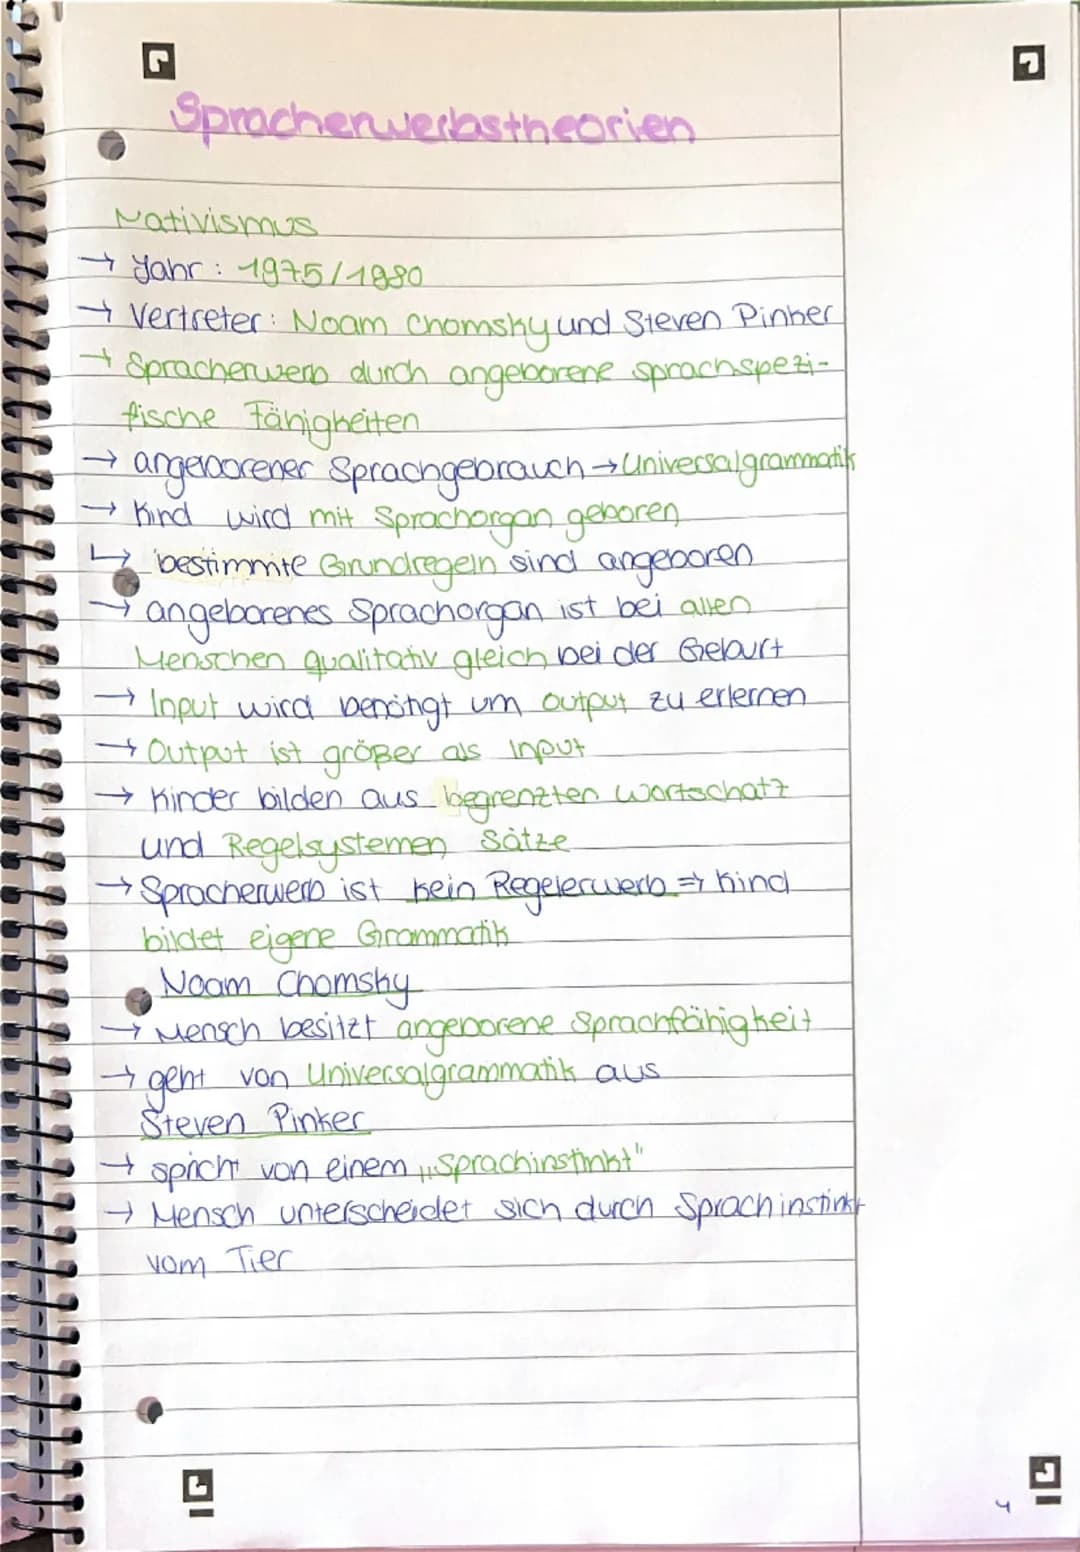 Spracherwerbstheorien
Nativismus
→ Jahr: 1975/1980
→ Vertreter: Noam Chomsky und Steven Pinker
→ Spracherwerb durch angeborene sprachspezi-
fische Fähigkeiten
→ angeborener Sprachgebrauch → Universalgrammatik
→ Kind wird mit Sprachorgan geboren
↳ bestimmte Grundregeln sind angeboren
→ angeborenes Sprachorgan ist bei allen
Menschen qualitativ gleich bei der Geburt
→ Input wird benötigt um output zu erlernen
→ Output ist größer als Input
→ Kinder bilden aus begrenzten Wortschatz
und Regelsystemen Sätze
→ Spracherwerb ist kein Regelerwerb ⇒ Kind
bildet eigene Grammatik
Noam Chomsky
→ Mensch besitzt angeborene Sprachfähigkeit
→ geht von Universalgrammatik aus
Steven Pinker
→ spricht von einem „Sprachinstinkt"
→ Mensch unterscheidet sich durch Sprachinstinkt
vom Tier
4